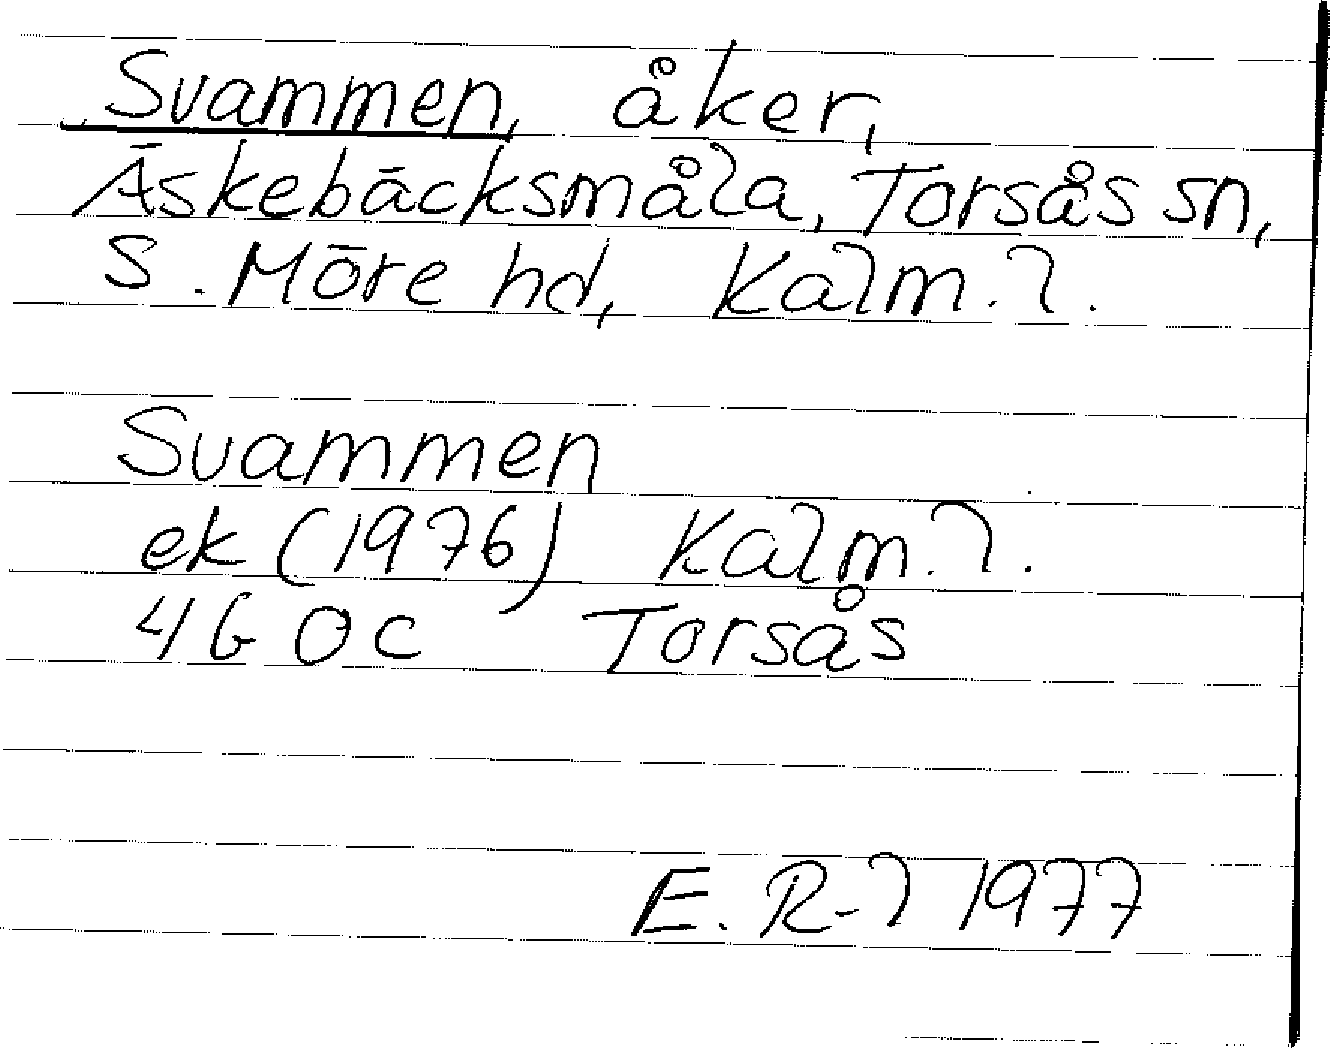 Svammen, åker,
Äskebäcksmåla, Torsås sn,
S. Möre hd, Kalm. l.
Svammen
ek (1976) Kalm. l.
4G 0c Torsås
E. R-l 1977